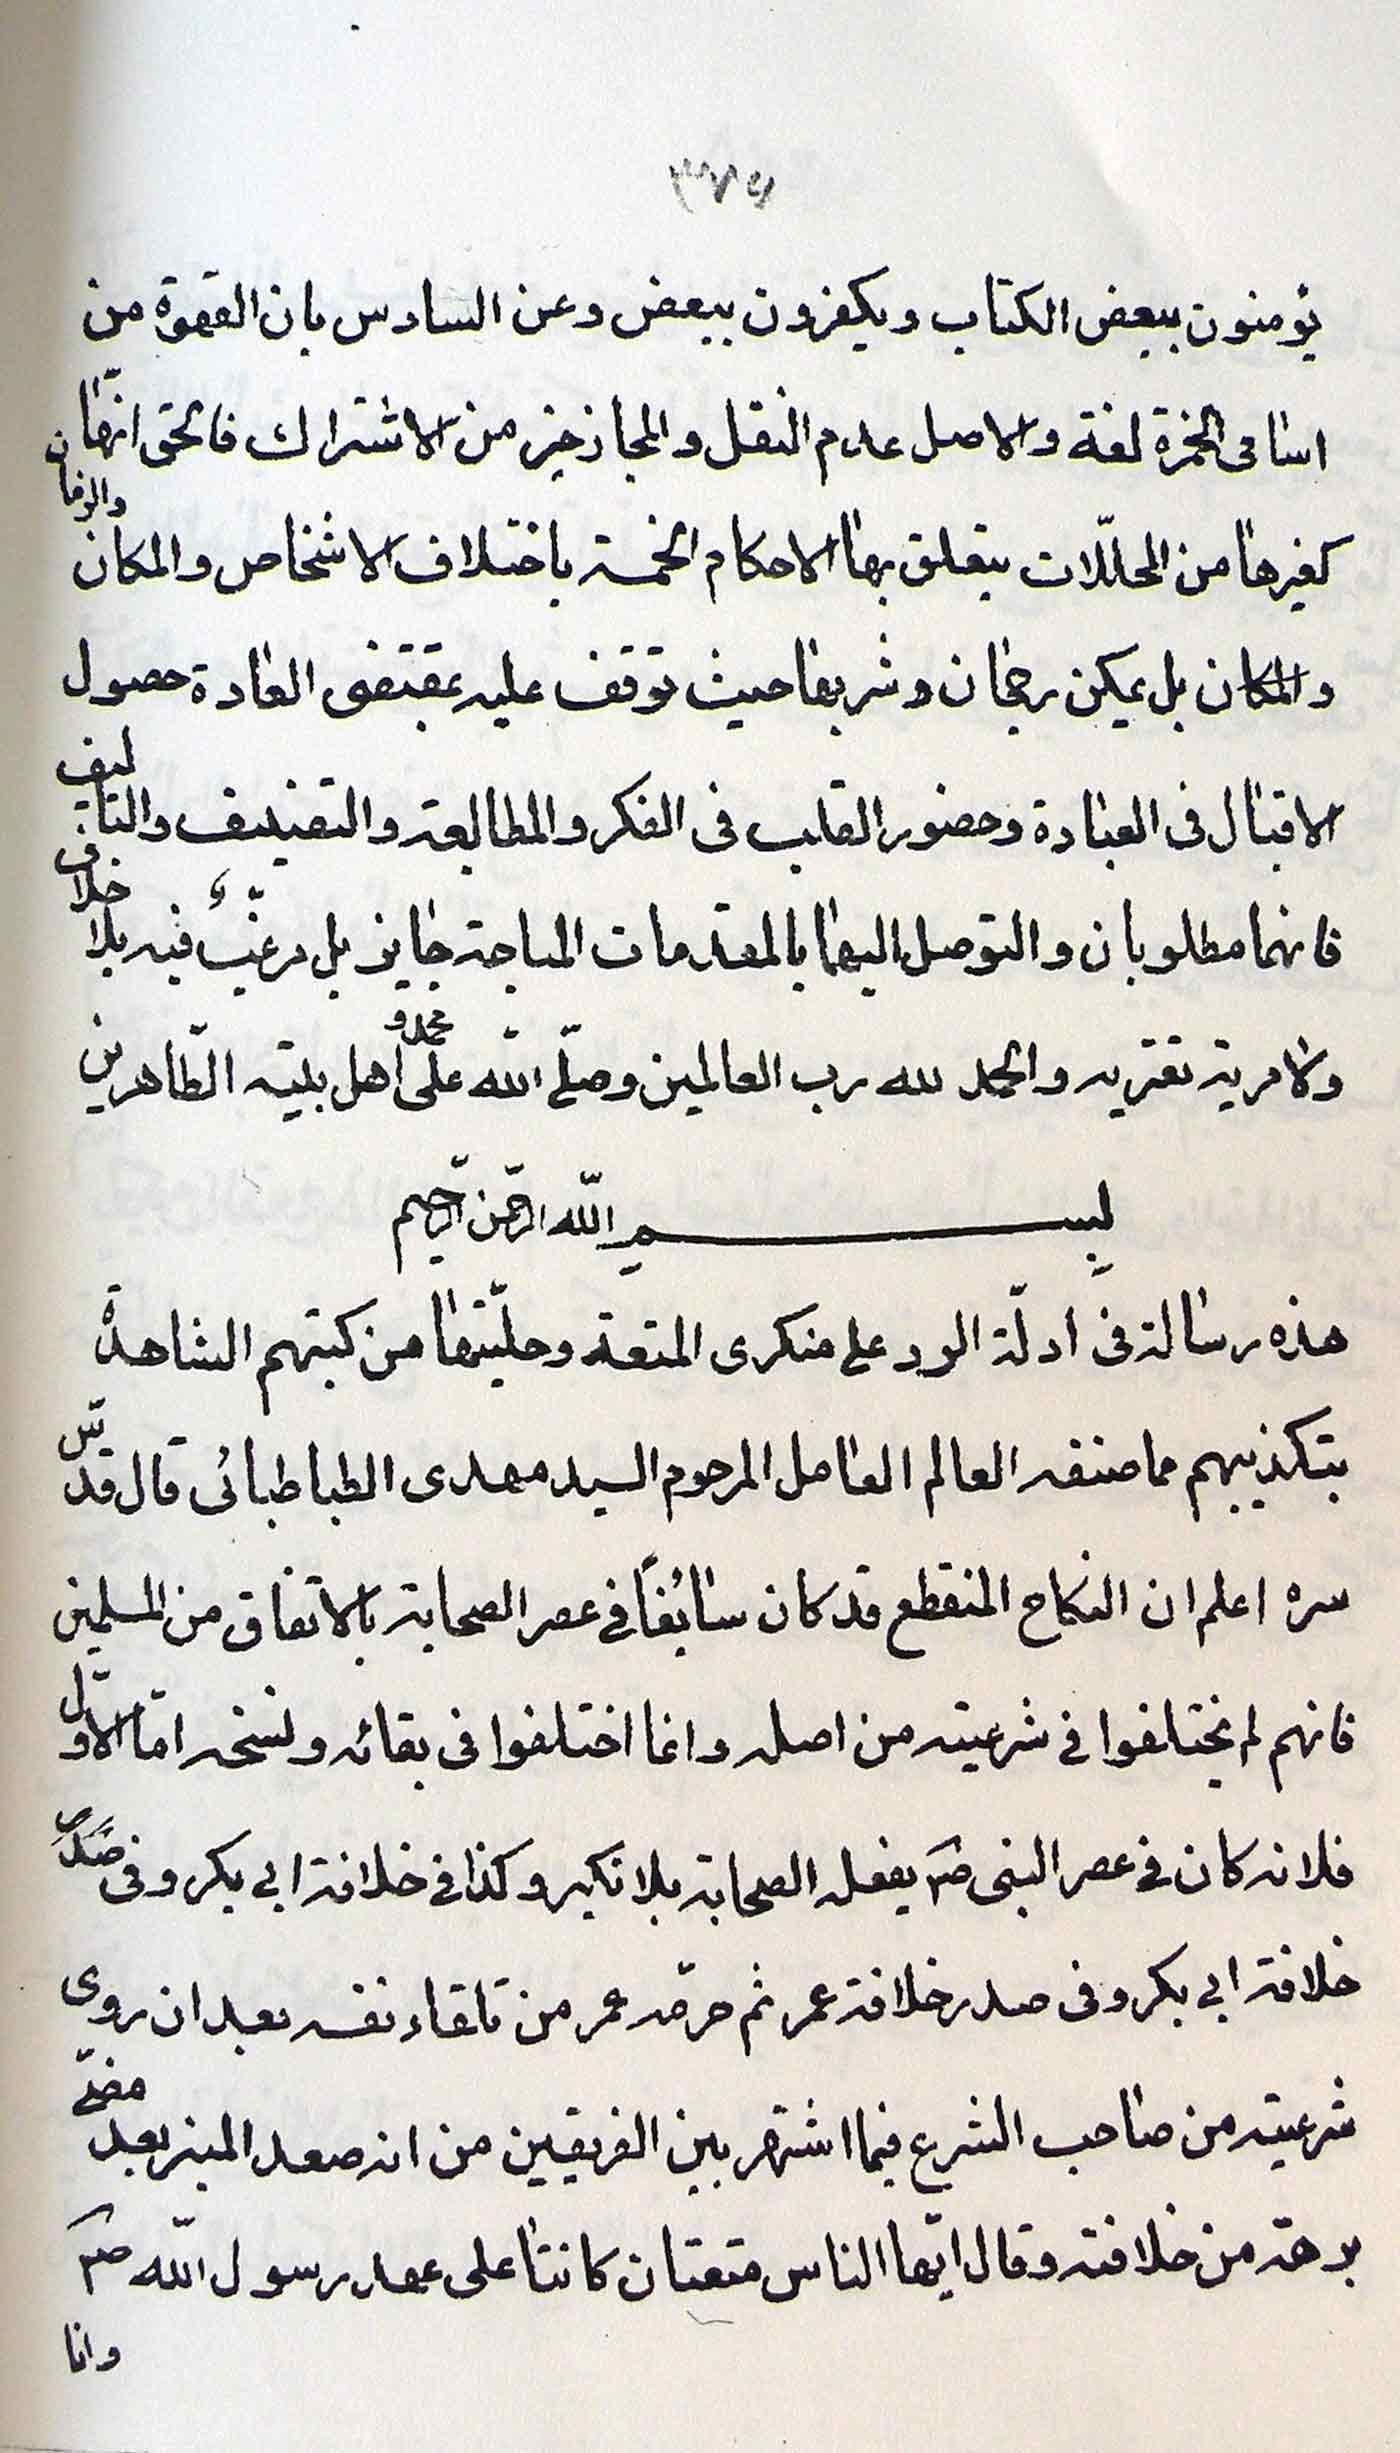 يؤمنون ببعض الكتاب ويكفرون ببعض وعن السادس بان القهوة من
اسامى الخمرة لغة والاصل عدم النقل والمجاز خير من الاشتراك فالحق انها
كغيرها من المحللّات يتعلق بها الاحكام الخمسة باختلاف الاشخاص والمكان والزمان
والمكان بل يمكن رجحان وشربها حيث توقف عليه بمقتضى العادة حصول
الاقبال فى العبادة وحضور القلب فى الفكر والمطالعة والتصنيف والتاليف
فانهما مطلوبان والتوصل اليهما بالمقدمات المباحة جايز بل مرغّب فيه بلا خلاف
ولا مرية تعتريه والحمد لله رب العالمين وصلّى الله على محمد و اهل بيته الطّاهرين
بسم الله الرّحمن الرّحيم
هذه رسالة فى ادلّة الرد على منكرى المتعة وحليّتها من كتبهم الشاهدة
بتكذيبهم مما صنفه العالم العامل المرحوم السيد مهدى الطباطبائى قال قدّس
سره اعلم ان النكاح المنقطع قد كان سائغاً فى عصر الصحابة بالاتفاق من المسلمين
فانهم لم يختلفوا فى شرعيته من اصله وانما اختلفوا فى بقائه ونسخه امّا الاوّل
فلانه كان فى عصر النبى ص يفعله الصحابة بلا نكير وكذا فى خلافة ابى بكر وفى صدر
خلافة ابى بكر وفى صدر خلافة عمر ثم حرّمه عمر من تلقاء نفسه بعد ان روى
شرعيته من صاحب الشرع فيما اشتهر بين الفريقين من انه صعد المنبر بعد مضىّ
برهة من خلافته وقال ايّها الناس متعتان كانتا على عهد رسول اللّه ص
وانا